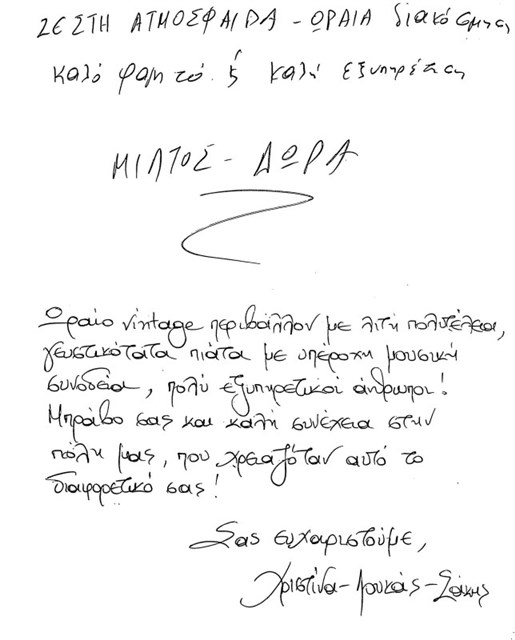 ΖΕΣΤΗ ΑΤΜΟΣΦΑΙΡΑ - ΩΡΑΙΑ διακόσμηση
καλό φαγητό. & καλή εξυπηρέτηση
ΜΙΛΤΟΣ - ΔΩΡΑ
Ωραίο vintage περιβάλλον με λιτή πολυτέλεια,
γευστικότατα πιάτα με υπέροχη μουσική
συνοδεία, πολύ εξυπηρετικοί άνθρωποι!
Μπράβο σας και καλή συνέχεια στην
πόλη μας, που χρειαζόταν αυτό το
διαφορετικό σας!
Σας ευχαριστούμε,
Χριστίνα-Λουκάς-Σάκης